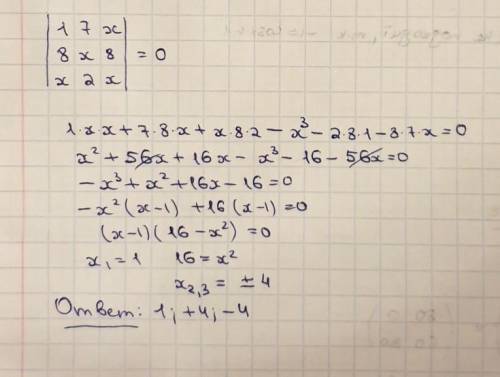 | 1 7 x |
| 8 x 8 | = 0
| x 2 x |
1·x·x + 7·8·x + x·8·2 − x³ − 2·8·1 − 8·7·x = 0
x² + 56x + 16x − x³ − 16 − 56x = 0
−x³ + x² + 16x − 16 = 0
−x²(x−1) + 16(x−1) = 0
(x−1)(16−x²) = 0
x₁ = 1 16 = x²
x₂,₃ = ± 4
Ответ: 1; +4; −4